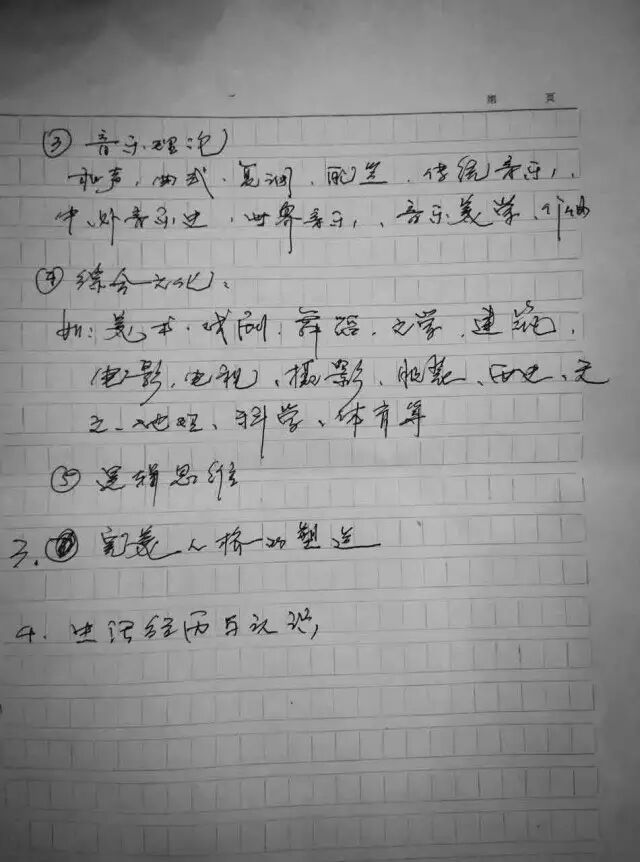 第 页
③ 音乐理论
和声、曲式、复调、配器、传统音乐、
中、外音乐史、世界音乐、、音乐美学、作曲
④ 综合文化:
如:美术、戏剧、舞蹈、文学、建筑、
电影、电视、摄影、服装、历史、天
文、地理、科学、体育等
⑤ 逻辑思维
3. 完美人格的塑造
4. 生活经历与